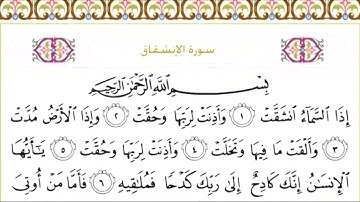 سورة الإنشقاق
بِسْمِ اللَّهِ الرَّحْمَٰنِ الرَّحِيمِ
إِذَا السَّمَاءُ انشَقَّتْ ١ وَأَذِنَتْ لِرَبِّهَا وَحُقَّتْ ٢ وَإِذَا الْأَرْضُ مُدَّتْ
٣ وَأَلْقَتْ مَا فِيهَا وَتَخَلَّتْ ٤ وَأَذِنَتْ لِرَبِّهَا وَحُقَّتْ ٥ يَا أَيُّهَا
الْإِنسَانُ إِنَّكَ كَادِحٌ إِلَىٰ رَبِّكَ كَدْحًا فَمُلَاقِيهِ ٦ فَأَمَّا مَنْ أُوتِيَ